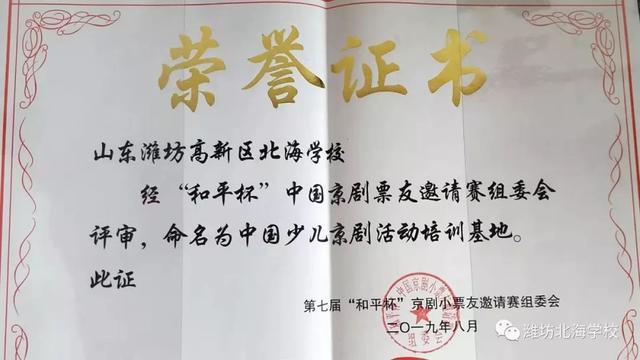 荣誉证书
山东潍坊高新区北海学校
经“和平杯”中国京剧票友邀请赛组委会
评审，命名为中国少儿京剧活动培训基地。
此证
第七届“和平杯”京剧小票友邀请赛组委会
二〇一九年八月
潍坊北海学校